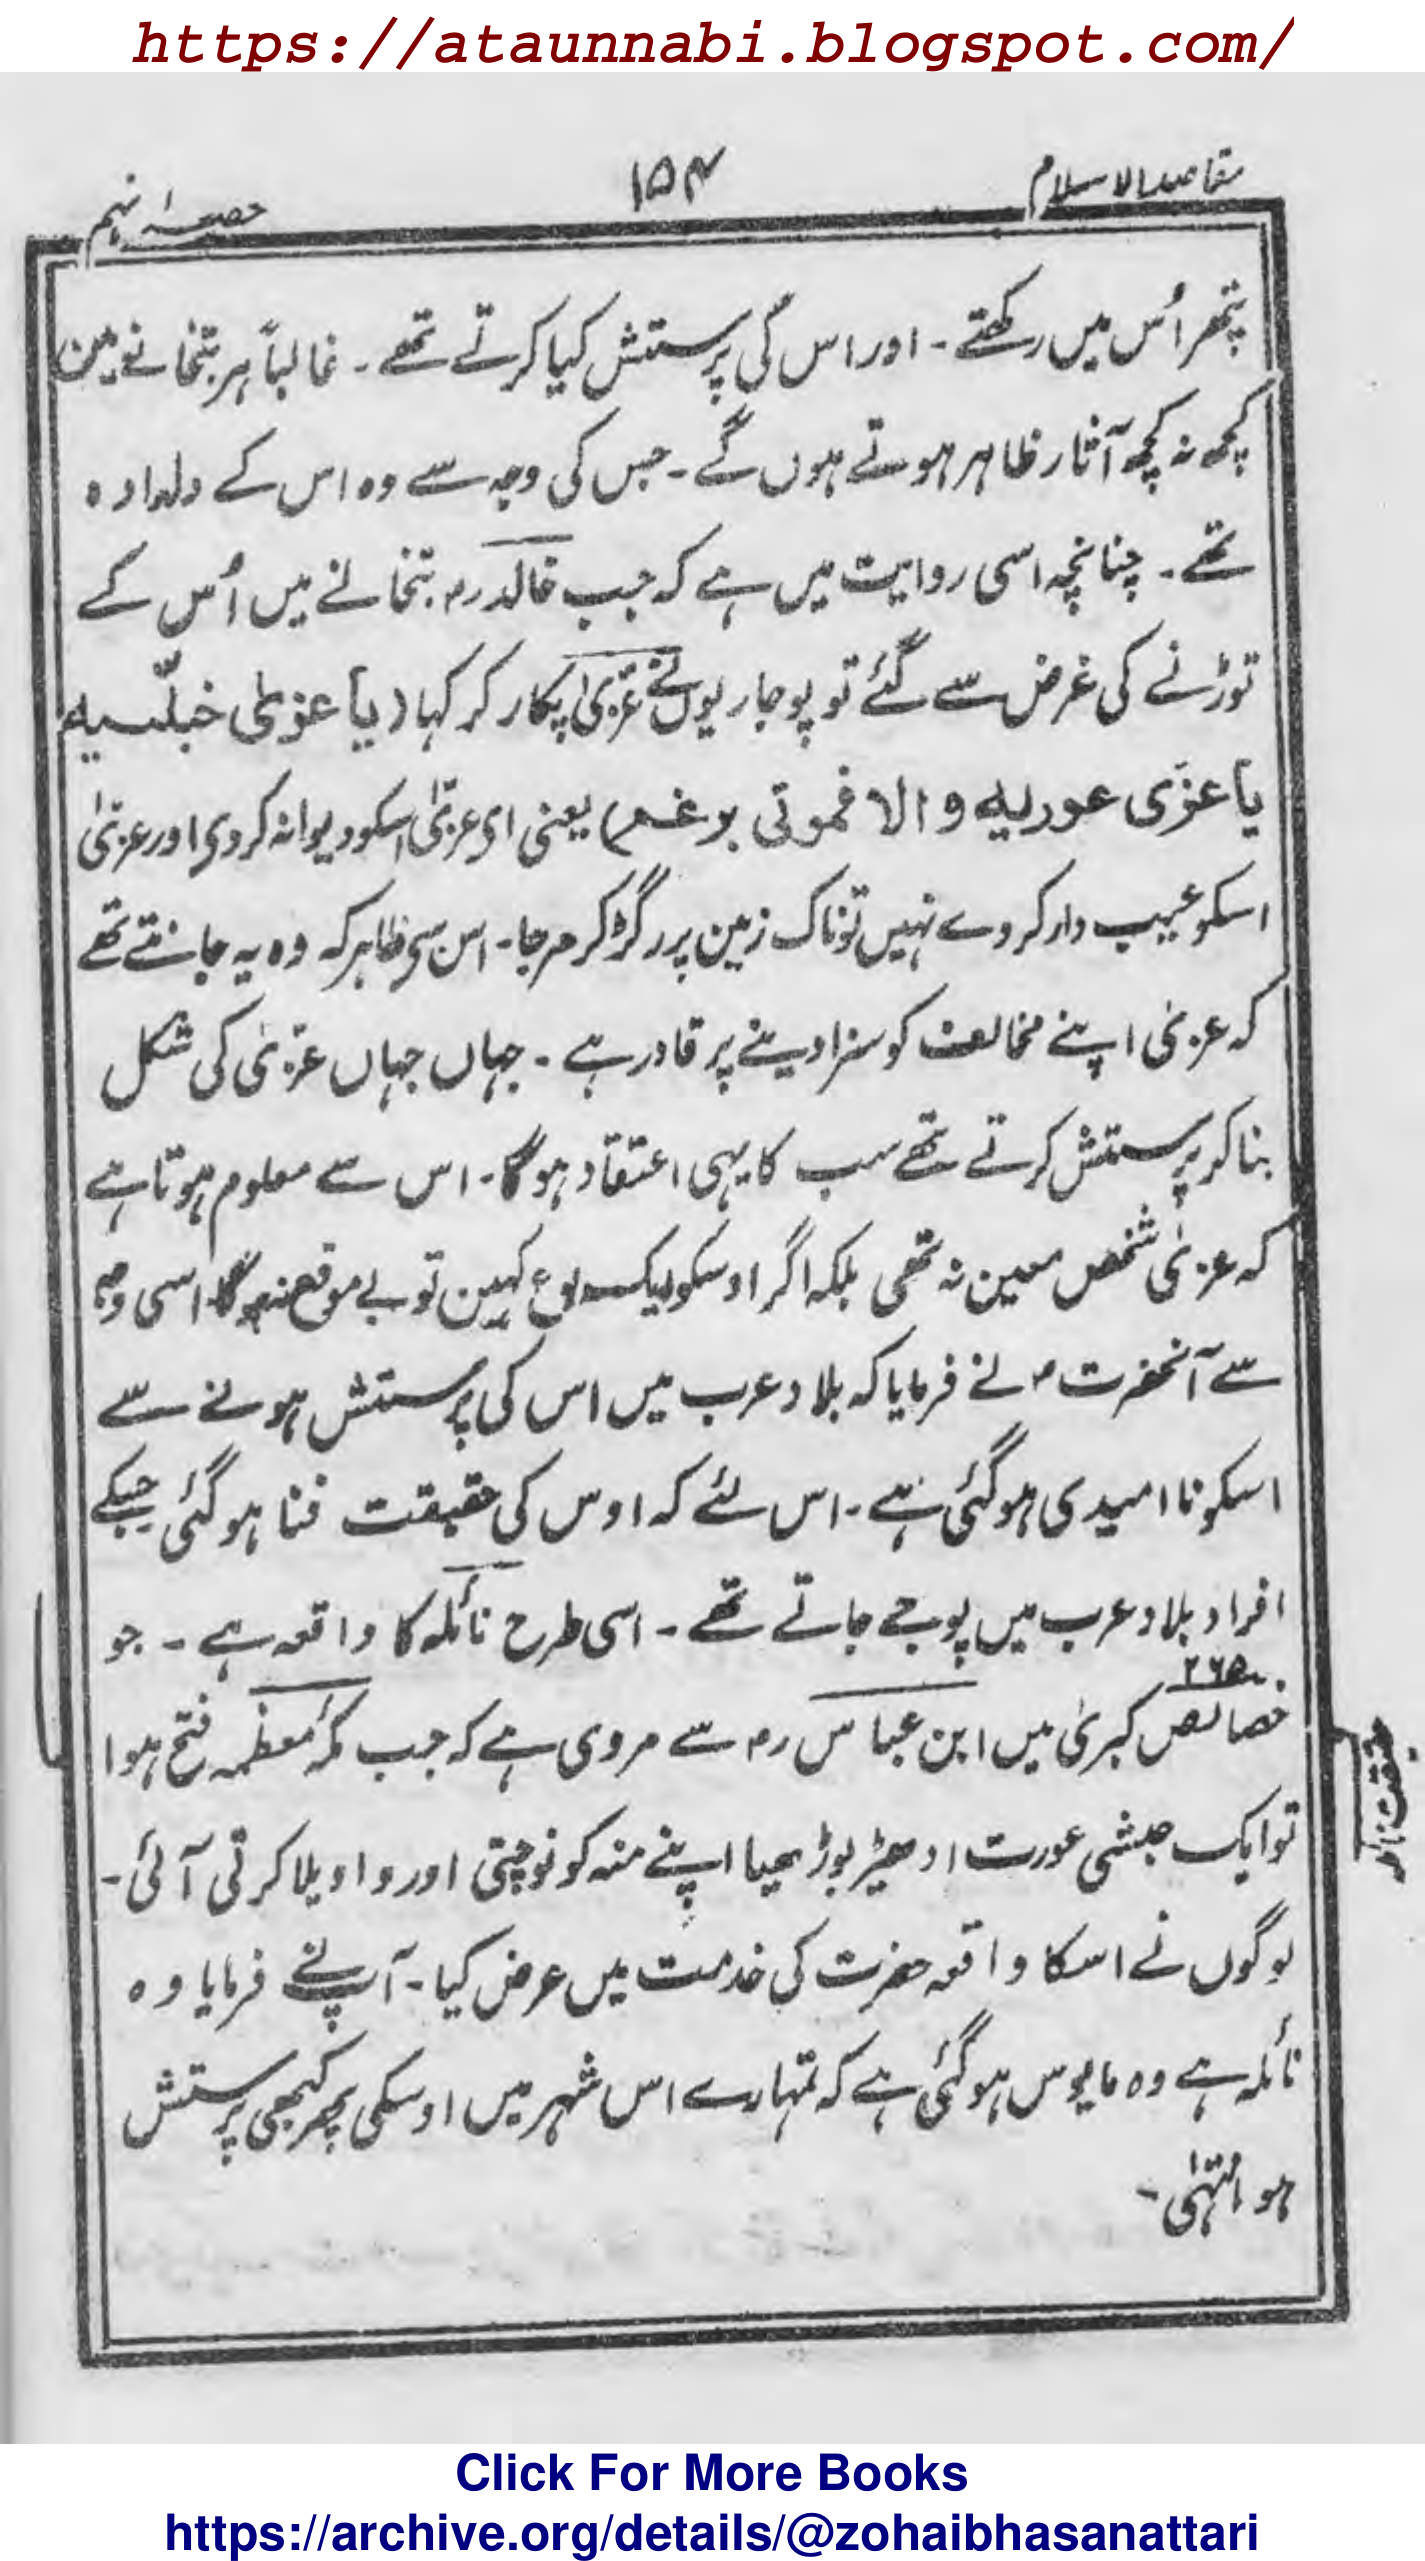 https://ataunnabi.blogspot.com/
مقاصد الاسلام
۱۵۴
حصۂ نہم
پتھر اُس میں رکھتے۔ اور اس کی پرستش کیا کرتے تھے۔ غالباً ہر بتخانے مین
کچھ نہ کچھ آثار ظاہر ہوتے ہوں گے۔ جس کی وجہ سے وہ اس کے دلدادہ
تھے۔ چنانچہ اسی روایت میں ہے کہ جب خالد رض بتخانے میں اُس کے
توڑنے کی غرض سے گئے تو پوجاریوں نے عزّیٰ پکار کر کہا (یا عزیٰ خبلّیہ
یا عزّی عوریہ والا فموتی برغم) یعنی ای عزیّٰ اسکو دیوانہ کردی اور عزیّٰ
اسکو عیب دار کردے نہیں تو ناک زمین پر رگڑ کر مرجا۔ اس سی ظاہر کہ وہ یہ جانتے تھے
کہ عزیٰ اپنے مخالف کو سزا دینے پر قادر ہے۔ جہاں جہاں عزّیٰ کی شکل
بناکر پرستش کرتے تھے سب کا یہی اعتقاد ہوگا۔ اس سے معلوم ہوتا ہے
کہ عزیٰ شخص معین نہ تھی بلکہ اگر اوسکو ایک نوع کہین تو بے موقع نہوگا۔ اسی وجہ
سے آنحضرت ؐ نے فرمایا کہ بلاد عرب میں اس کی پرستش ہونے سے
اسکو ناامیدی ہوگئی ہے۔ اس لئے کہ اوس کی حقیقت فنا ہوگئی جسکے
افراد بلاد عرب میں پوجے جاتے تھے۔ اسی طرح نائلہ کا واقعہ ہے۔ جو
۲۶۵
خصائص کبریٰ میں ابن عباس رض سے مروی ہے کہ جب مکۂ معظمہ فتح ہوا
تو ایک حبشی عورت ادھیڑ بوڑھیا اپنے منہ کو نوچتی اور واویلا کرتی آئی۔
لوگوں نے اسکا واقعہ حضرت کی خدمت میں عرض کیا۔ آپ نے فرمایا وہ
نائلہ ہے وہ مایوس ہوگئی ہے کہ تمہارے اس شہر میں اوسکی پھر کبھی پرستش
ہو انتہٰی۔
حقیقت نائلہ
Click For More Books
https://archive.org/details/@zohaibhasanattari